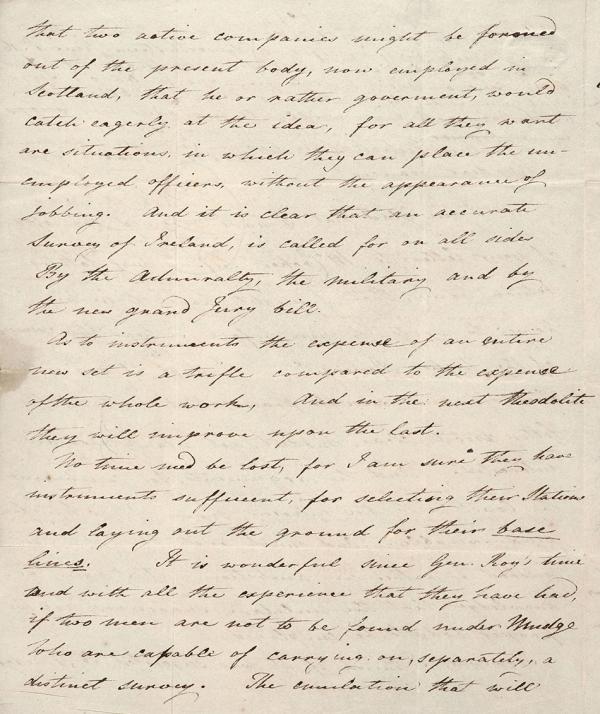 that two active companies might be formed
out of the present body, now employed in
Scotland, that he or rather goverment, would
catch eagerly at the idea, for all they want
are situations, in which they can place the un-
employed officers, without the appearance of
jobbing. And it is clear that an accurate
Survey of Ireland, is called for on all sides
By the Admiralty, the military and by
the new grand Jury bill.
As to instruments the expense of an entire
new set is a trifle compared to the expense
of the whole work, And in the next theodolite
they will improve upon the last.
No time need be lost, for I am sure they have
instruments sufficient, for selecting their Stations
and laying out the ground for their base
lines. It is wonderful since Gen. Roy's time
and with all the experience that they have had,
if two men are not to be found under Mudge
who are capable of carrying on, separately, a
distinct survey. The emulation that will